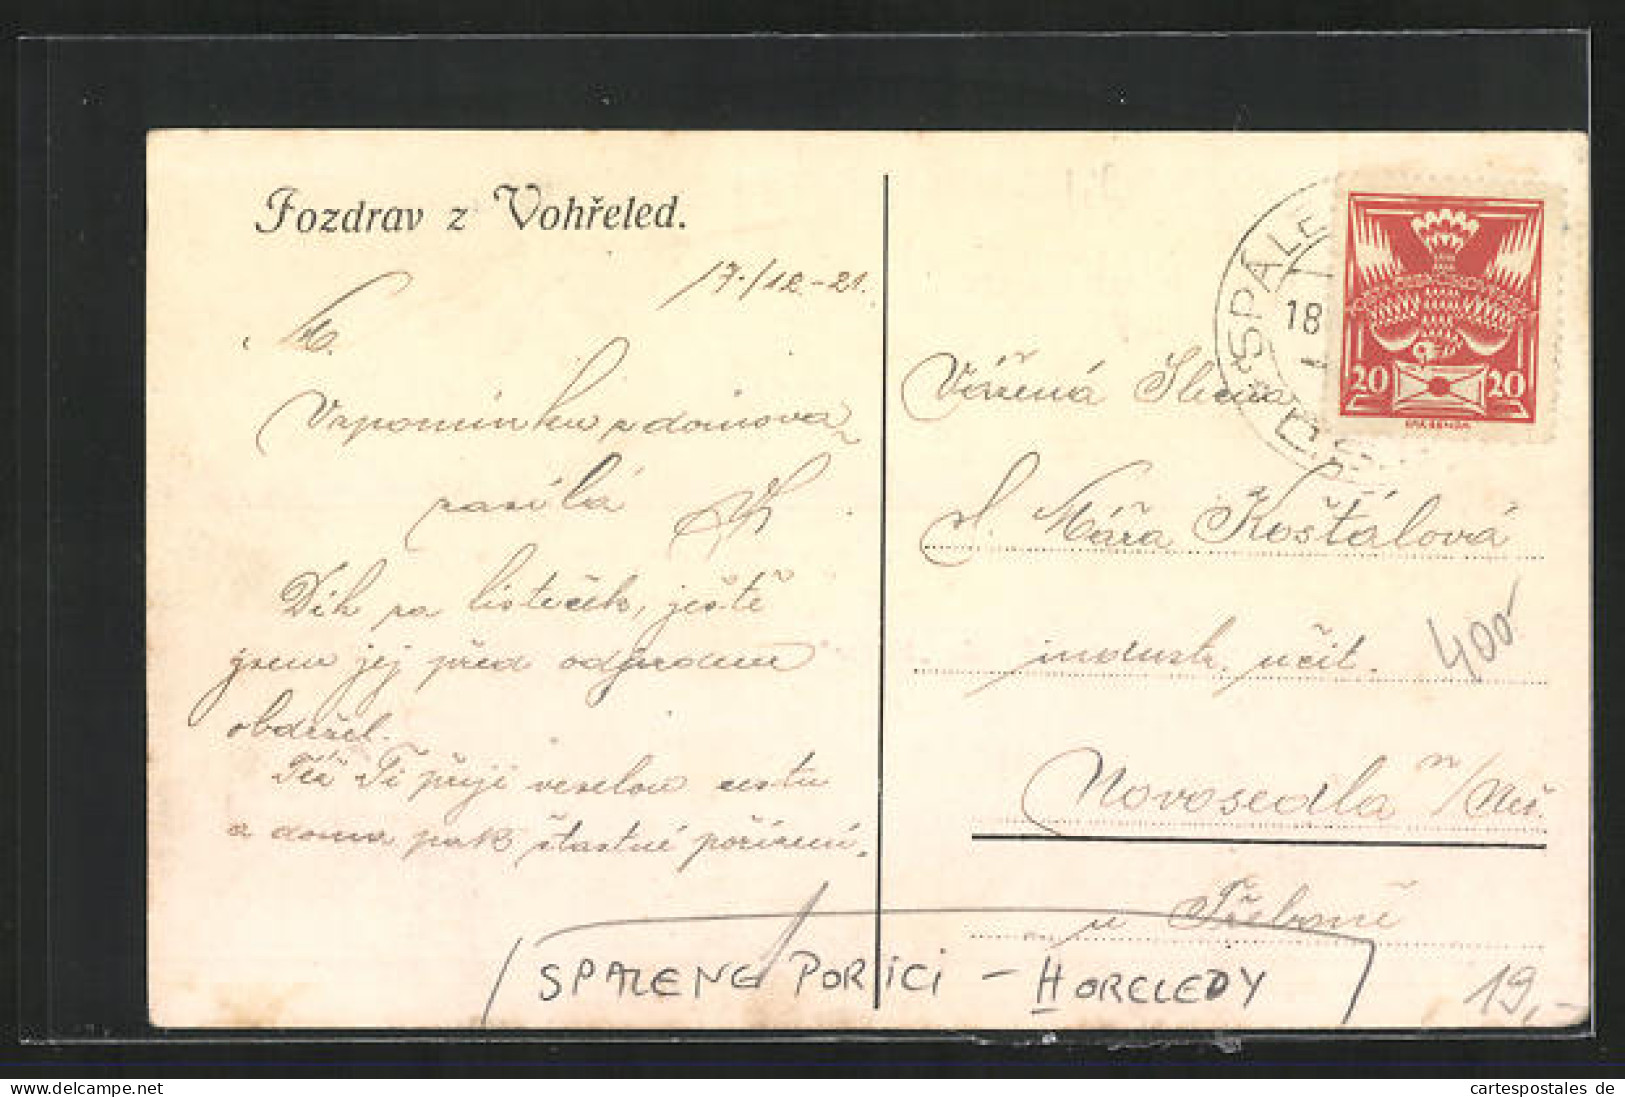 Pozdrav z Vohřeled.
17./12.-21.
M.
Vzpomínku z domova
zasílá
Dík za lísteček, ještě
jsem jej před odjezdem
obdržel.
Též Ti přeji veselou cestu
a doma pak šťastné pořízení.
SPÁLE
18
20 20
Vážená Slečna
Sl. Máňa Košťálová
industr. učit.
400
Novosedla n/Než.
u Třeboně
SPALENE PORICI - HORELEDY
19,-
cartespostales de